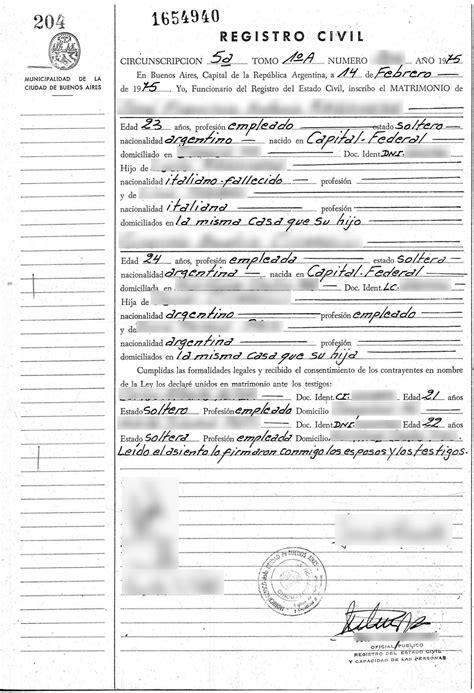 204
1654940
REGISTRO CIVIL
MUNICIPALIDAD DE LA
CIUDAD DE BUENOS AIRES
CIRCUNSCRIPCION 5a TOMO 1ºA NUMERO AÑO 1975
En Buenos Aires, Capital de la República Argentina, a 14 de Febrero
de 1975 Yo, Funcionario del Registro del Estado Civil, inscribo el MATRIMONIO de
Edad 23 años, profesión empleado estado soltero
nacionalidad argentino nacido en Capital Federal
domiciliado en Doc. Ident. DNI.
Hijo de
nacionalidad italiano-fallecido profesión
y de
nacionalidad italiana profesión
domiciliados en la misma casa que su hijo
Edad 24 años, profesión empleada estado soltera
nacionalidad argentina nacida en Capital Federal
domiciliada en Doc. Ident. LC.
Hija de
nacionalidad argentino profesión empleado
y de
nacionalidad argentina profesión
domiciliados en la misma casa que su hija
Cumplidas las formalidades legales y recibido el consentimiento de los contrayentes en nombre
de la Ley los declaré unidos en matrimonio ante los testigos:
Doc. Ident. CI. Edad 21 años
Estado soltero Profesión empleado Domicilio
Doc. Ident. DNI. Edad 22 años
Estado soltera Profesión empleada Domicilio
Leído el asiento lo firmaron conmigo los esposos y los testigos.
OFICIAL PUBLICO
REGISTRO DEL ESTADO CIVIL
Y CAPACIDAD DE LAS PERSONAS